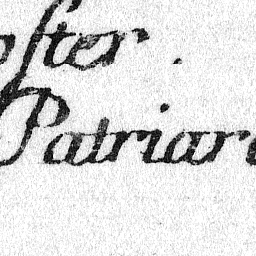 ſter.
Patriar